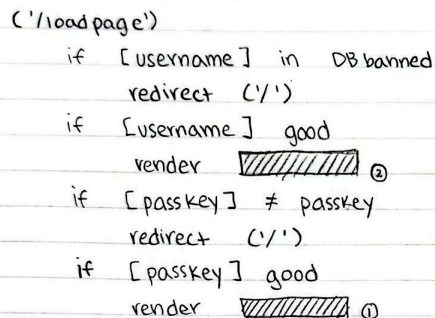 ('/loadpage')
if [username] in DB banned
redirect ('/')
if [username] good
render ②
if [passkey] ≠ passkey
redirect ('/')
if [passkey] good
render ①